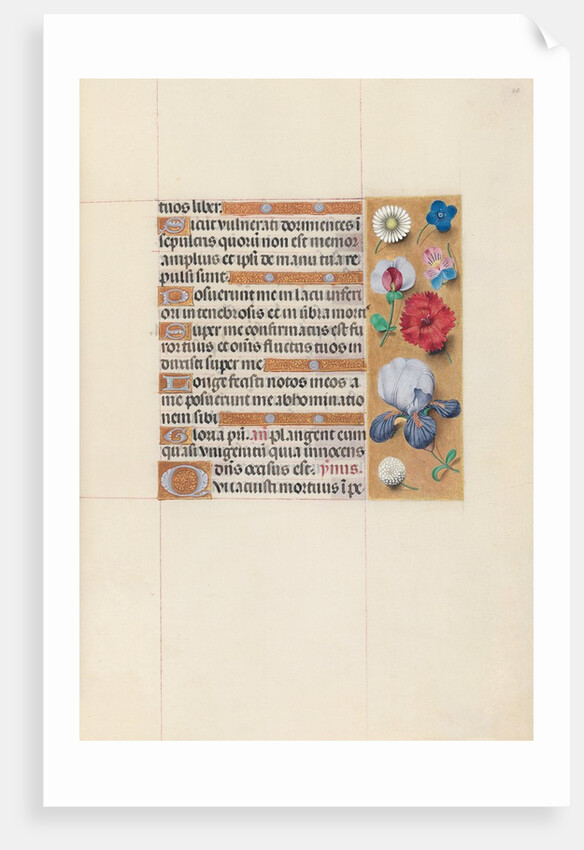 tuos liber.
Sicut vulnerati dormientes ī
sepulcris quorū non est memor
amplius et ipsi de manu tua re
pulsi sunt.
Posuerunt me in lacu inferi
ori in tenebrosis et in ūbra morti
Super me confirmatus est fu
ror tuus et om̄s fluctus tuos in
duxisti super me
Longe fecisti notos meos a
me posuerunt me abhominatio
nem sibi
Gloria pr̄i. an̄ plangent eum
quasi unigenitū quia innocens
dn̄s occisus est. ym̄nus.
Qui tacuisti mortuus ī pe